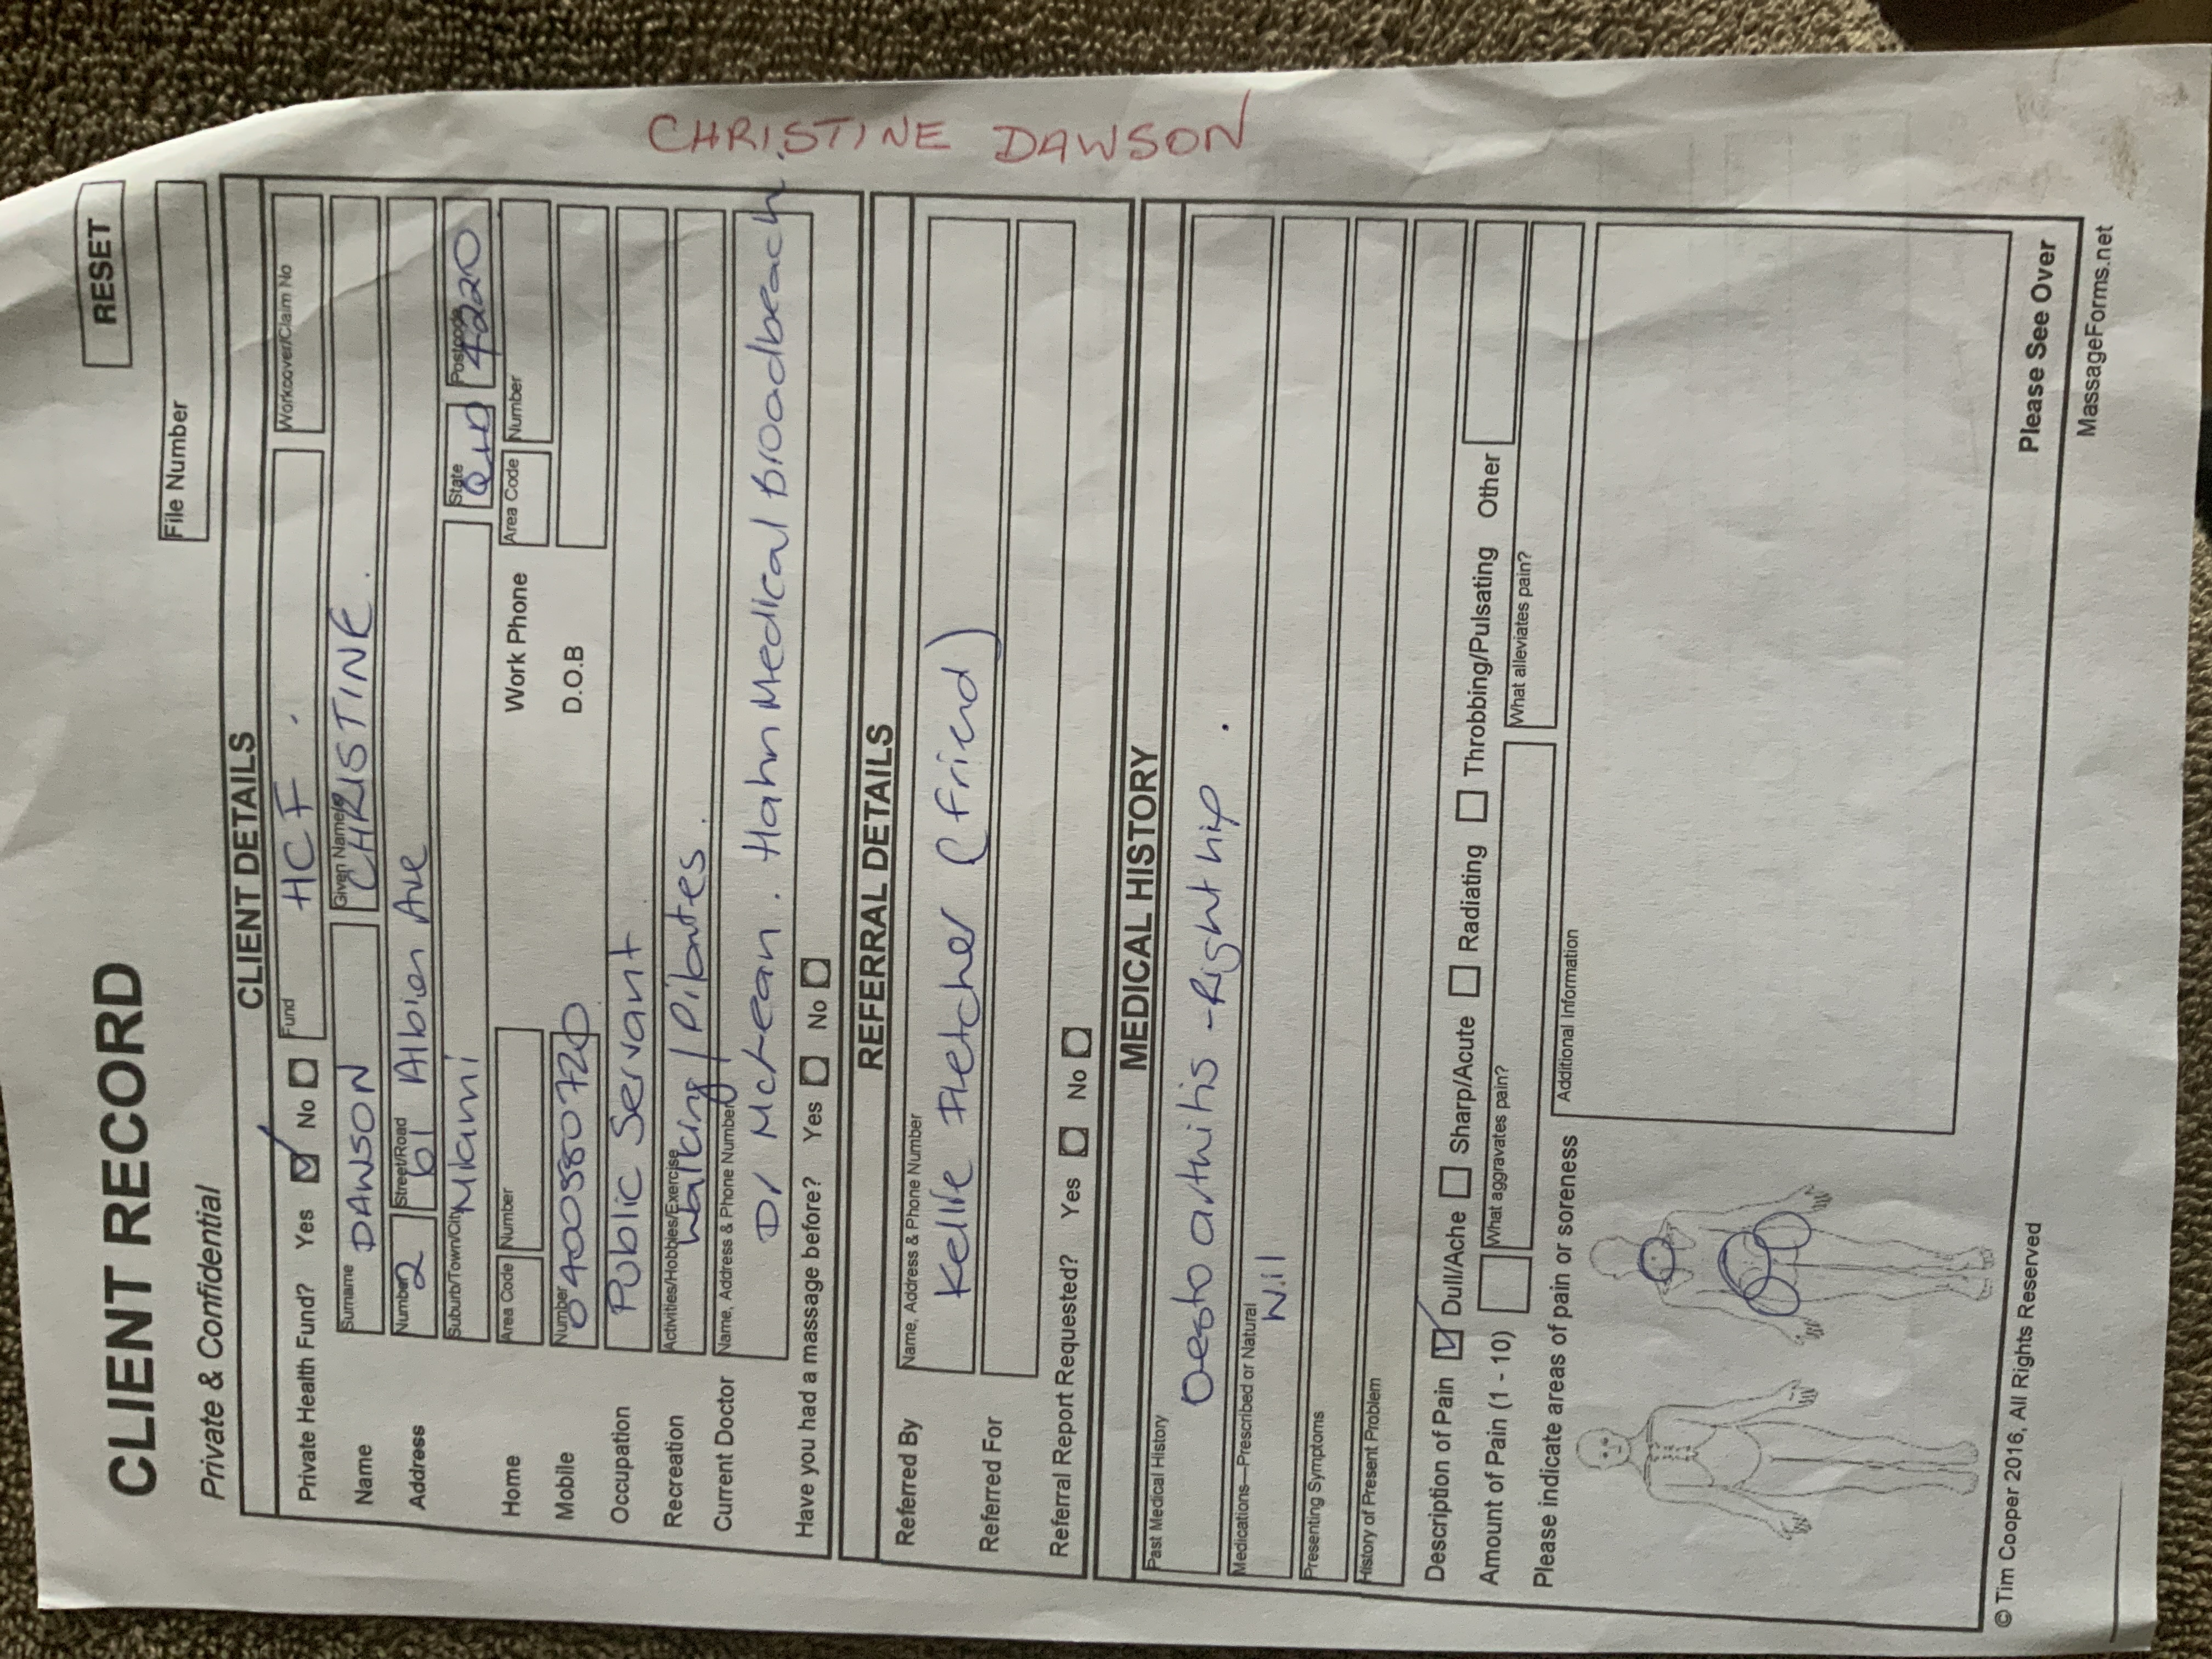 RESET
CLIENT RECORD
Private & Confidential
File Number
CLIENT DETAILS
Private Health Fund? Yes No Fund HCF. Workcover/Claim No
Name Surname DAWSON Given Name/s CHRISTINE.
Address Number 2 Street/Road 61 Albion Ave
Suburb/Town/City Miami State QLD Postcode 4220
Home Area Code Number Work Phone Area Code Number
Mobile Number 0400580720 D.O.B
Occupation Public Servant
Recreation Activities/Hobbies/Exercise Walking / Pilates.
Current Doctor Name, Address & Phone Number Dr McKean. Hahn Medical Broadbeach
Have you had a massage before? Yes No
CHRISTINE DAWSON
REFERRAL DETAILS
Referred By Name, Address & Phone Number Kellie Fletcher (friend)
Referred For
Referral Report Requested? Yes No
MEDICAL HISTORY
Past Medical History Oesto arthitis - Right hip.
Medications—Prescribed or Natural Nil
Presenting Symptoms
History of Present Problem
Description of Pain Dull/Ache Sharp/Acute Radiating Throbbing/Pulsating Other
Amount of Pain (1 - 10) What aggravates pain? What alleviates pain?
Please indicate areas of pain or soreness Additional Information
Please See Over
© Tim Cooper 2016, All Rights Reserved MassageForms.net